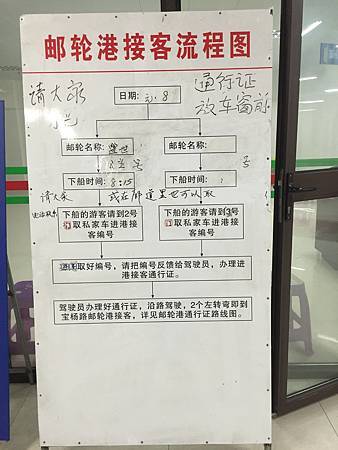 邮轮港接客流程图
请大家
通行证
放车窗前
日期：
8
邮轮名称：
邮轮名称：
号
下船时间：8:15
下船时间：
请大家
或在
也可以取
下船的游客请到2号
取私家车进港接
客编号
下船的游客请到3号
取私家车进港接
客编号
取好编号，请把编号反馈给驾驶员，办理进
港接客通行证。
驾驶员办理好通行证，沿路驾驶，2个左转弯即到
宝杨路邮轮港接客，详见邮轮港通行证路线图。